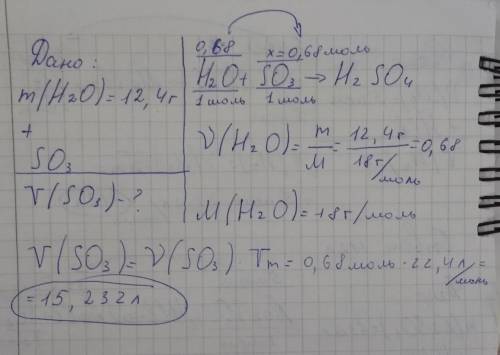 Дано:
m(H₂O)=12,4г
+
SO₃
V(SO₃)-?
0,68 x=0,68моль
H₂O+SO₃→H₂SO₄
1моль 1моль
ν(H₂O)=m/M=12,4г/18г/моль=0,68
M(H₂O)=18г/моль
V(SO₃)=ν(SO₃)·Vm=0,68моль·22,4л/моль=
=15,232л